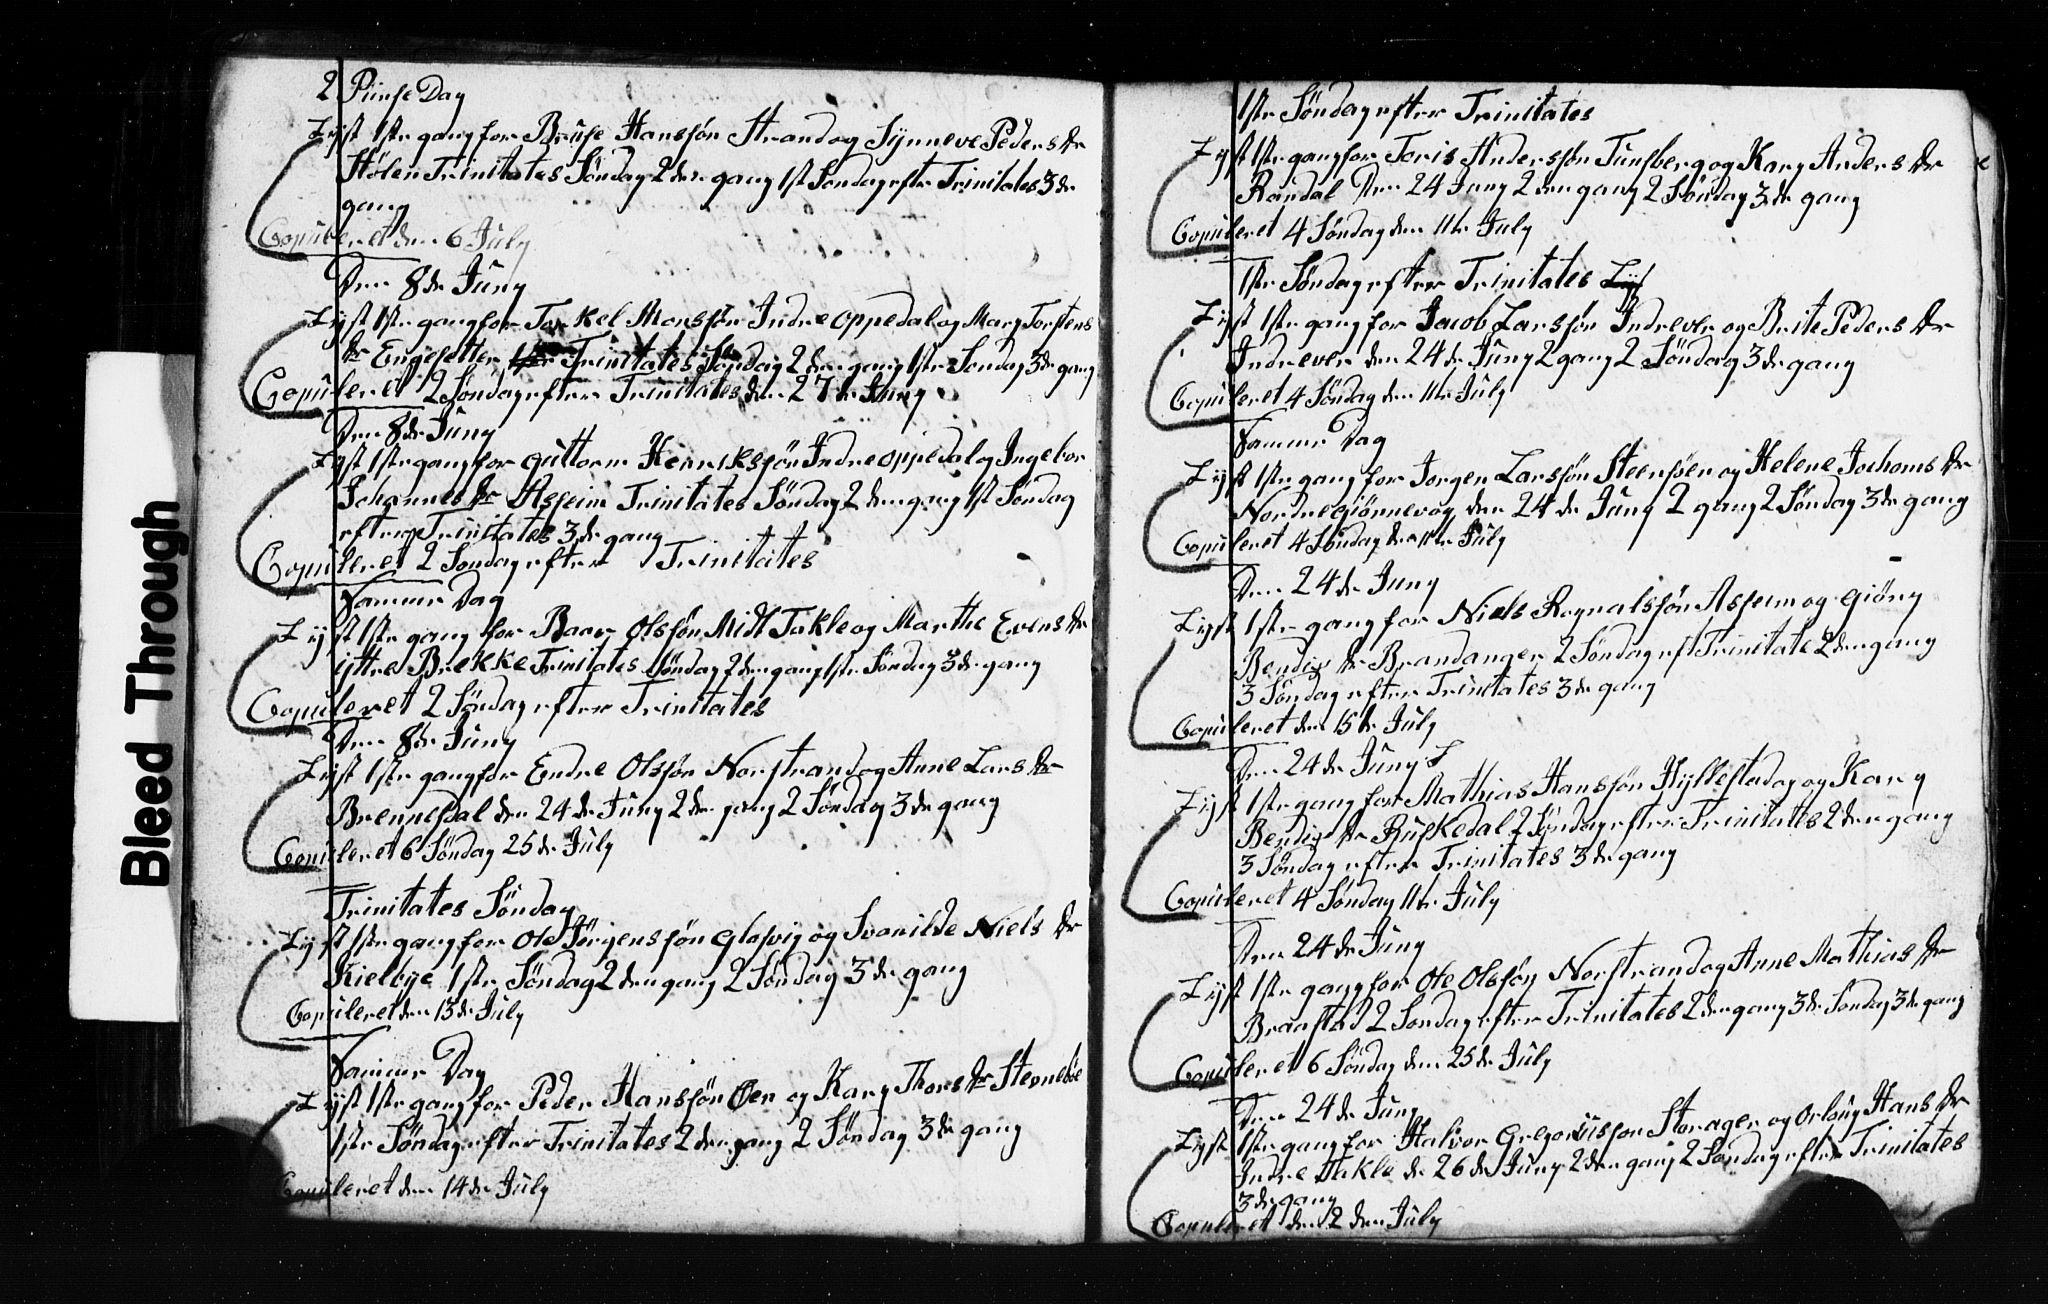 2 Pinse Dag
Lyst 1ste gang for Bruse Hanssøn Strand og Synneve Peders dr
Hølen Trinitates Søndag 2den gang 1st Søndag efter Trinitates 3de
gang
Copuleret den 6 July
Den 8de Juny
Lyst 1ste gang for Torkel Monssøn Indre oppedal og Mary Torstens
dr Engesetter Trinitates Søndag 2den gang 1ste Søndag 3de gang
Copuleret 2 Søndag efter Trinitates den 27de Juny
Den 8de Juny
Lyst 1ste gang for Guttorm Henrikssøn Indre oppedal og Ingebor
Johannes dr Asheim Trinitates Søndag 2den gang 1st Søndag
efter Trinitates 3de gang
Copuleret 2 Søndag efter Trinitates
Samme Dag
Lyst 1ste gang for Baar Olssøn Midt Takle og Marthe Evens dr
yttre Brekke Trinitates Søndag 2den gang 1ste Søndag 3de gang
Copuleret 2 Søndag efter Trinitates
Den 8de Juny
Lyst 1ste gang for Endre Olssøn Norstrand og Anne Lars dr
Brennesdal den 24de Juny 2den gang 2 Søndag 3de gang
Copuleret 6 Søndag 25de July
Trinitates Søndag
Lyst 1ste gang for Ole Jørgenssøn Glasvig og Svanilde Niels dr
Kielbye 1ste Søndag 2den gang 2 Søndag 3de gang
Copuleret den 13de July
Samme Dag
Lyst 1ste gang for Peder Hanssøn Øen og Kary Thors dr Stenebøe
1ste Søndag efter Trinitates 2den gang 2 Søndag 3de gang
Copuleret den 14de July
1ste Søndag efter Trinitates
Lyst 1ste gang for Joris Anderssøn Tunsberg og Kary Anders dr
Randal Den 24 Juny 2den gang 2 Søndag 3de gang
Copuleret 4 Søndag den 11te July
1ste Søndag efter Trinitates Lyst
Lyst 1ste gang for Jacob Larssøn Indrever og Brite Peders dr
Indrever den 24de Juny 2 gang 2 Søndag 3de gang
Copuleret 4 Søndag den 11te July
Samme Dag
Lyst 1ste gang for Jorgen Larssøn Steensøen og Helene Jochoms dr
Nordregiønnevog den 24de Juny 2 gang 2 Søndag 3de gang
Copuleret 4 Søndag den 11te July
Den 24de Juny
Lyst 1ste gang for Niels Rognalssøn Asheim og Giøny
Bendix dr Brandanger 2 Søndag eft Trinitate 2den gang
3 Søndag efter Trinitates 3de gang
Copuleret den 15de July
Den 24de Juny L
Lyst 1ste gang for Mathias Hanssøn Hyllestad og Kary
Bendix dr Ruskedal 2 Søndag efter Trinitates 2den gang
3 Søndag efter Trinitates 3de gang
Copuleret 4 Søndag 11te July
Den 24de Juny
Lyst 1ste gang for Ole Olssøn Norstrand og Anne Mathias dr
Braastad 2 Søndag efter Trinitates 2den gang 3de Søndag 3de gang
Copuleret 6 Søndag den 25de July
Den 24de Juny
Lyst 1ste gang for Halvor Gregoriussøn Storager og Orloug Hans dr
Indre Takle de 26de Juny 2den gang 2 Søndag efter Trinitates
3de gang
Copuleret den 2den July
Bleed Through